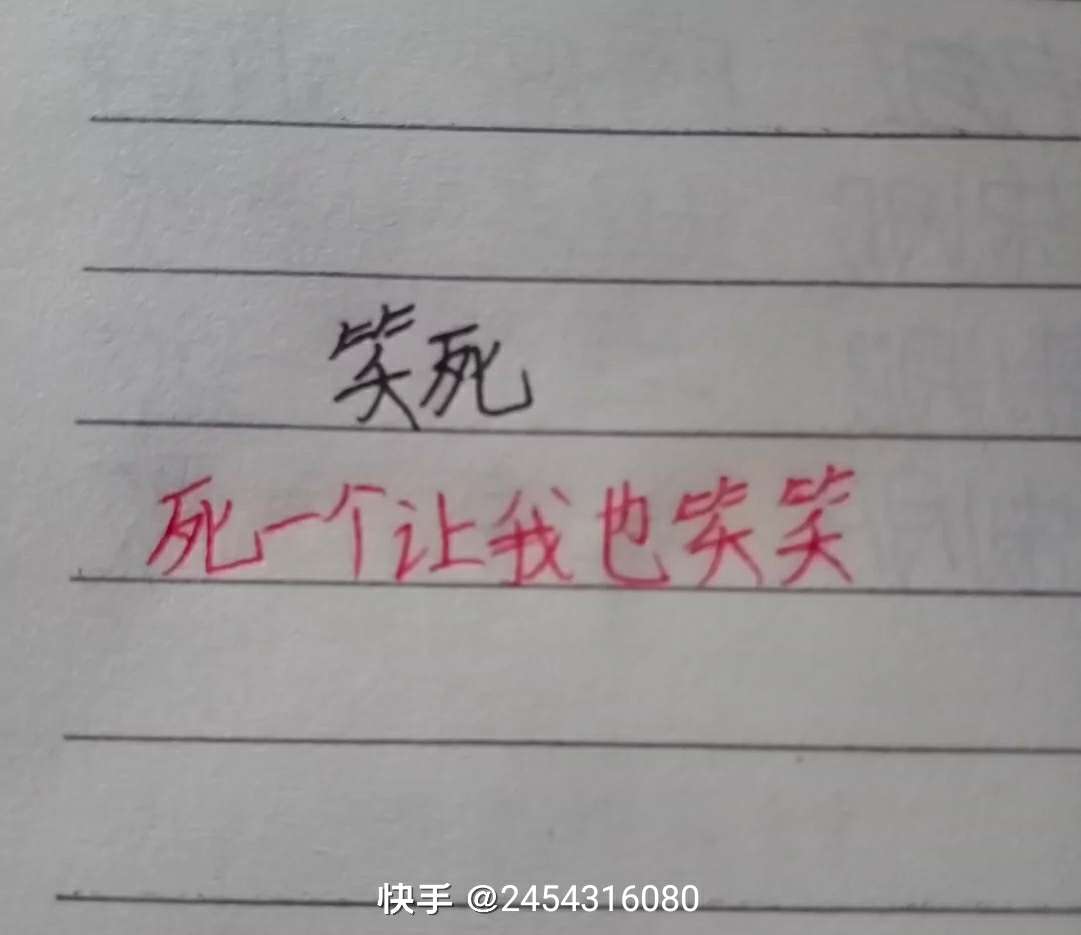 笑死
死一个让我也笑笑
快手 @2454316080